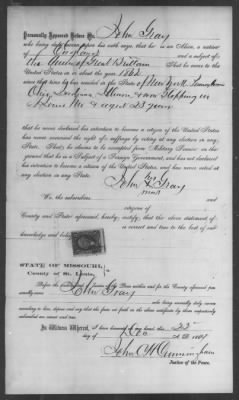 Personally Appeared Before Me, John Gray
who being duly sworn upon his oath says, that he is an Alien, a native
of England and a subject of
the Queen of Great Brittain That he came to the
United States in or about the year 1862
since that time he has resided in the State of New York Pennsylvania
Ohio Indiana Illinois & now Stopping in
St Louis Mo & aged 23 years
that he never declared his intention to become a citizen of the United States
has never exercised the right of suffrage by voting at any election in any
State. That he claims to be exempted from Military Service on the
ground that he is a Subject of a Foreign Government, and has not declared
his intention to become a citizen of the United States, and has never voted at
any election in any State.
John X Gray
his mark
We, the subscribers, and
citizens of
County and State aforesaid, hereby certify, that the above statement of
is correct and true to the best of our
knowledge and belief
STATE OF MISSOURI,
County of St. Louis,
Before the undersigned within and for the County aforesaid personally came
John Gray
who being severally duly sworn
according to law, depose and say that the facts set forth in the above certificate by them respectively
subscribed are correct and true.
In Witness Whereof, I have hereunto set my hand, this 22
day of Dec A.D. 1864
John H Cunningham
Justice of the Peace.